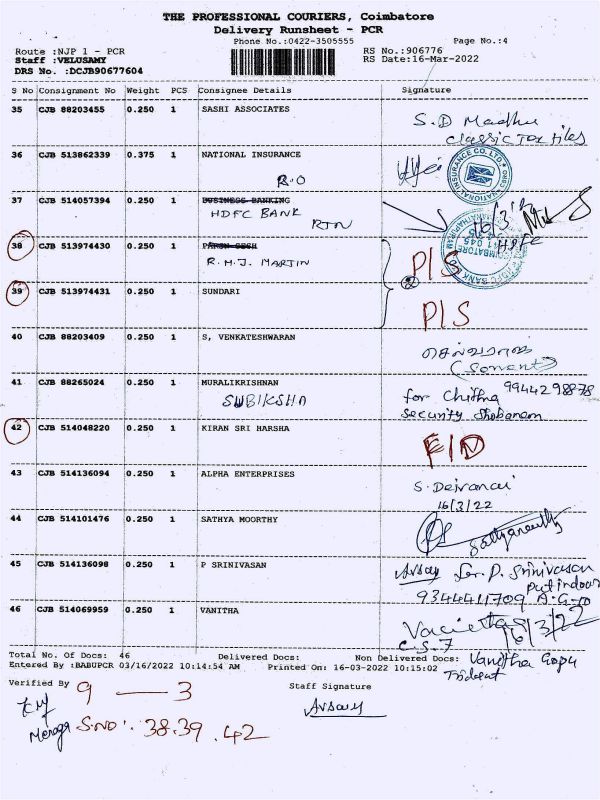 THE PROFESSIONAL COURIERS, Coimbatore
Delivery Runsheet - PCR
Phone No.:0422-3505555 Page No.:4
Route :NJP 1 - PCR RS No.:906776
Staff :VELUSAMY RS Date:16-Mar-2022
DRS No. :DCJB90677604
S No Consignment No Weight PCS Consignee Details Signature
35 CJB 88203455 0.250 1 SASHI ASSOCIATES
S.D Madhu
Classic Tex tiles
36 CJB 513862339 0.375 1 NATIONAL INSURANCE
R.O
NATIONAL INSURANCE CO. LTD.
37 CJB 514057394 0.250 1 BUSINESS BANKING
HDFC BANK RJN
HDFC BANK
COIMBATORE
38 CJB 513974430 0.250 1
R.M.J. MARTIN P/S
39 CJB 513974431 0.250 1 SUNDARI
P/S
40 CJB 88203409 0.250 1 S, VENKATESHWARAN
(Servant)
41 CJB 88265024 0.250 1 MURALIKRISHNAN
SUBIKSHA for Chithra 9944298878
Security Shobanam
42 CJB 514048220 0.250 1 KIRAN SRI HARSHA
F/D
43 CJB 514136094 0.250 1 ALPHA ENTERPRISES
S. Deivanai
16/3/22
44 CJB 514101476 0.250 1 SATHYA MOORTHY
45 CJB 514136098 0.250 1 P SRINIVASAN
for P. Srinivasan
9344411709
46 CJB 514069959 0.250 1 VANITHA
16/3/22
Total No. Of Docs: 46 Delivered Docs: Non Delivered Docs: Vanitha Gopu
Entered By :BABUPCR 03/16/2022 10:14:54 AM Printed On: 16-03-2022 10:15:02
Trident
Verified By 9 — 3 Staff Signature
S.NO: 38.39.42